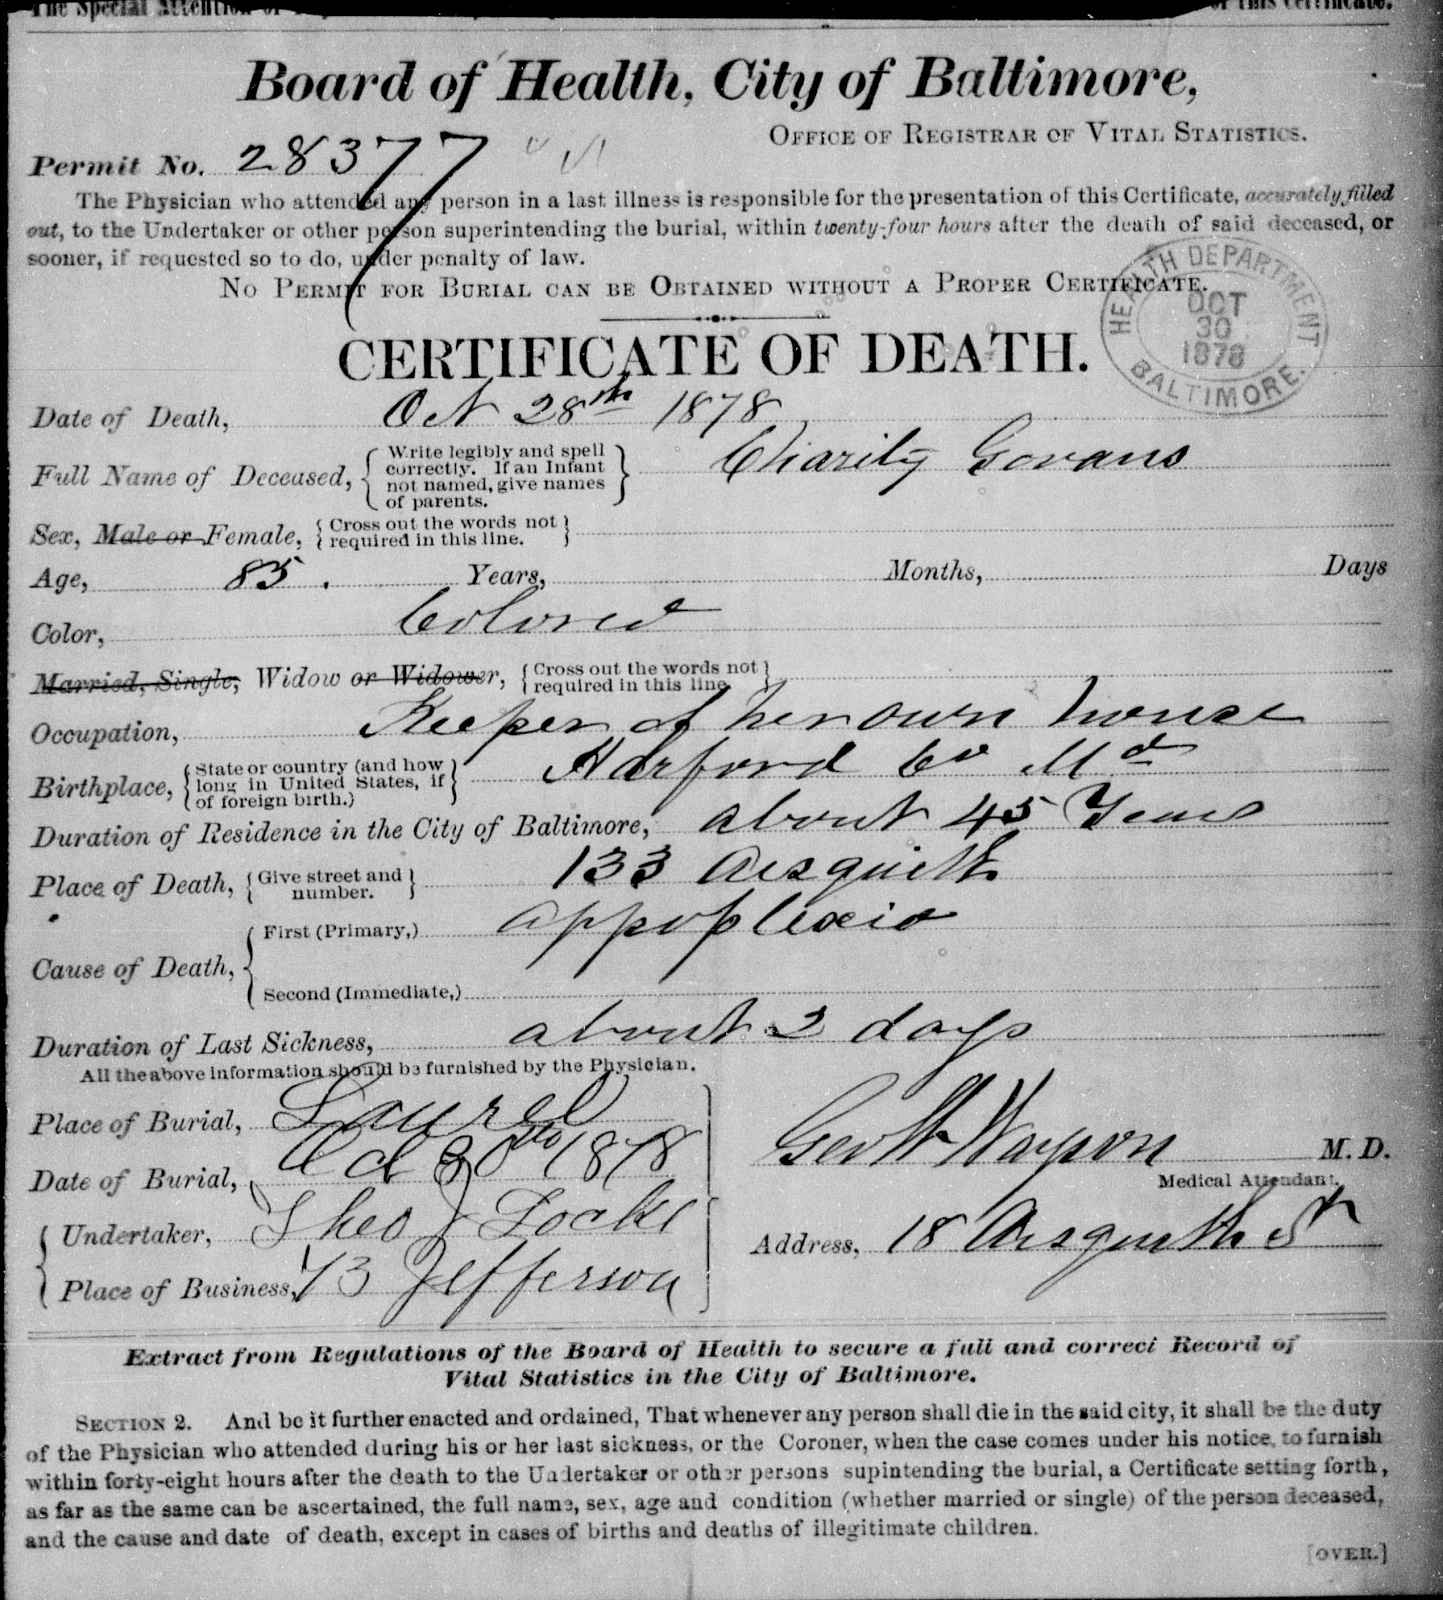 The Special Attention of
of this Certificate.
Board of Health, City of Baltimore,
OFFICE OF REGISTRAR OF VITAL STATISTICS.
Permit No. 28377
The Physician who attended any person in a last illness is responsible for the presentation of this Certificate, accurately filled
out, to the Undertaker or other person superintending the burial, within twenty-four hours after the death of said deceased, or
sooner, if requested so to do, under penalty of law.
NO PERMIT FOR BURIAL CAN BE OBTAINED WITHOUT A PROPER CERTIFICATE.
HEALTH DEPARTMENT
OCT
30
1878
BALTIMORE.
CERTIFICATE OF DEATH.
Date of Death, Oct 28th 1878
Full Name of Deceased, { Write legibly and spell correctly. If an Infant not named, give names of parents. } Charity Govans
Sex, Male or Female, { Cross out the words not required in this line. }
Age, 85. Years, Months, Days
Color, Colored
Married, Single, Widow or Widower, { Cross out the words not required in this line }
Occupation, Keeper of her own house
Birthplace, { State or country (and how long in United States, if of foreign birth.) } Harford Co Md
Duration of Residence in the City of Baltimore, about 45 Years
Place of Death, { Give street and number. } 133 Aisquith
Cause of Death, { First (Primary,) Appoplexia
Second (Immediate,)
Duration of Last Sickness, about 2 days
All the above information should be furnished by the Physician.
Place of Burial, Laurel
Date of Burial, Oct 30th 1878
Undertaker, Theo J Locke
Place of Business, 73 Jefferson
Geo W M. D.
Medical Attendant.
Address, 18 Aisquith St
Extract from Regulations of the Board of Health to secure a full and correct Record of
Vital Statistics in the City of Baltimore.
SECTION 2. And be it further enacted and ordained, That whenever any person shall die in the said city, it shall be the duty
of the Physician who attended during his or her last sickness, or the Coroner, when the case comes under his notice, to furnish
within forty-eight hours after the death to the Undertaker or other persons supintending the burial, a Certificate setting forth,
as far as the same can be ascertained, the full name, sex, age and condition (whether married or single) of the person deceased,
and the cause and date of death, except in cases of births and deaths of illegitimate children.
[OVER.]